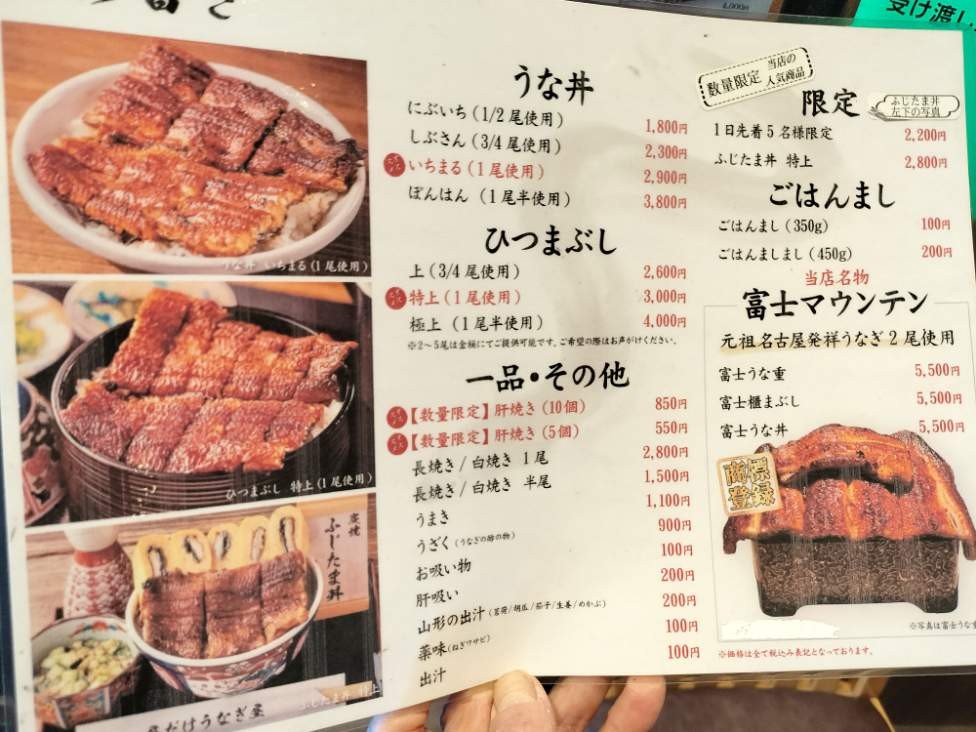 受け渡し
うな丼
にぶいち (1/2 尾使用) 1,800円
しぶさん (3/4 尾使用) 2,300円
いちまる (1 尾使用) 2,900円
ぽんはん (1 尾半使用) 3,800円
ひつまぶし
上 (3/4 尾使用) 2,600円
特上 (1 尾使用) 3,000円
極上 (1 尾半使用) 4,000円
※2〜5尾は金額にてご提供可能です。ご希望の際はお声がけください。
一品・その他
【数量限定】肝焼き (10個) 850円
【数量限定】肝焼き (5個) 550円
長焼き / 白焼き 1尾 2,800円
長焼き / 白焼き 半尾 1,500円
うまき 1,100円
うざく (うなぎの酢の物) 900円
お吸い物 100円
肝吸い 200円
山形の出汁 (茗荷/胡瓜/茄子/生姜/めかぶ) 200円
薬味 (ねぎワサビ) 100円
出汁 100円
数量限定 当店の人気商品
限定
ふじたま丼
左下の写真
1日先着5名様限定 2,200円
ふじたま丼 特上 2,800円
ごはんまし
ごはんまし (350g) 100円
ごはんましまし (450g) 200円
当店名物
富士マウンテン
元祖名古屋発祥うなぎ2尾使用
富士うな重 5,500円
富士櫃まぶし 5,500円
富士うな丼 5,500円
商標
登録
※写真は富士うな重
※価格は全て税込み表記となっております。
うな丼 いちまる (1尾使用)
ひつまぶし 特上 (1尾使用)
炭焼
ふじたま丼
ふじたま丼 特上
だけうなぎ屋